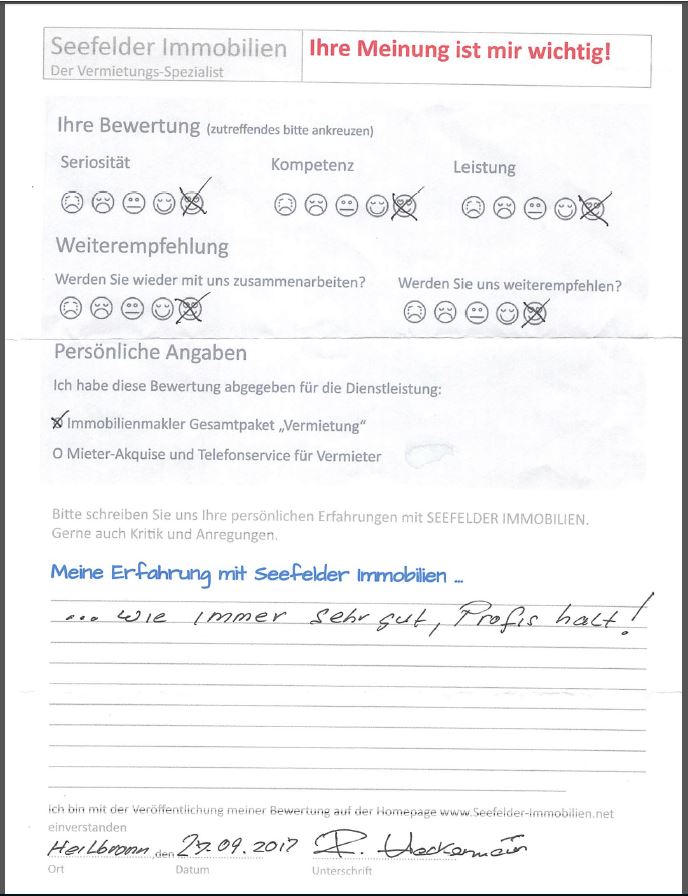 Seefelder Immobilien
Der Vermietungs-Spezialist
Ihre Meinung ist mir wichtig!
Ihre Bewertung (zutreffendes bitte ankreuzen)
Seriosität
Kompetenz
Leistung
Weiterempfehlung
Werden Sie wieder mit uns zusammenarbeiten?
Werden Sie uns weiterempfehlen?
Persönliche Angaben
Ich habe diese Bewertung abgegeben für die Dienstleistung:
Immobilienmakler Gesamtpaket „Vermietung“
O Mieter-Akquise und Telefonservice für Vermieter
Bitte schreiben Sie uns Ihre persönlichen Erfahrungen mit SEEFELDER IMMOBILIEN.
Gerne auch Kritik und Anregungen.
Meine Erfahrung mit Seefelder Immobilien ...
... wie immer sehr gut, Profis halt!
Ich bin mit der Veröffentlichung meiner Bewertung auf der Homepage www.Seefelder-Immobilien.net
einverstanden
Heilbronn, den .09.2017 R.
Ort Datum Unterschrift